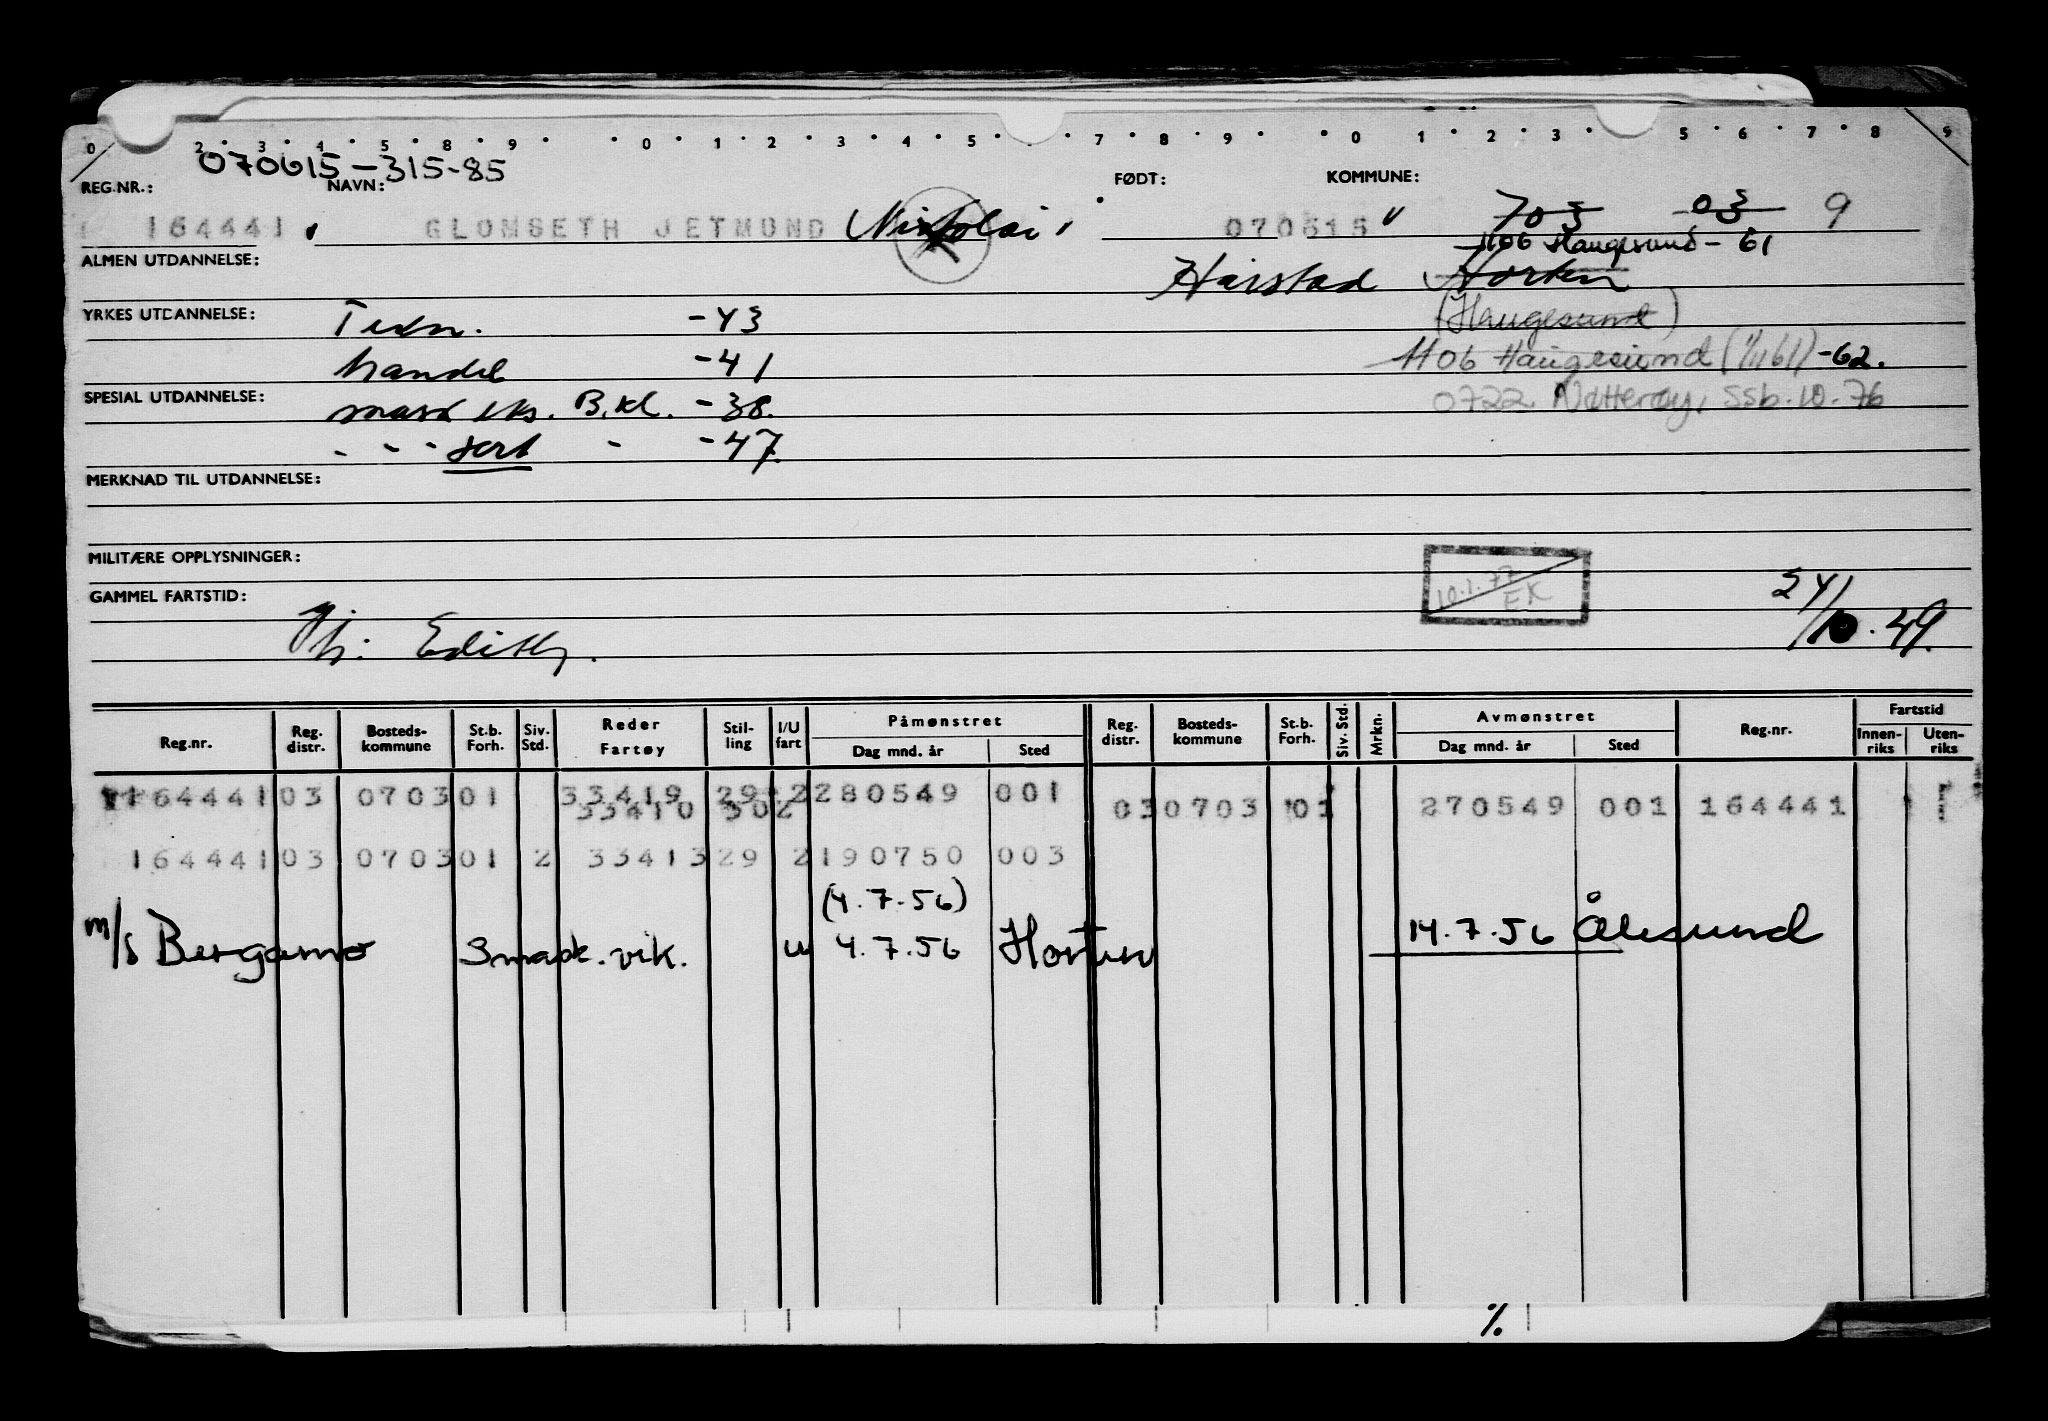 0 2 3 4 5 8 9 0 1 2 3 4 5 7 8 9 0 1 2 3 5 6 7 8 9
070615-315-85
REG.NR.: NAVN: FØDT: KOMMUNE:
164441 GLOMSETH JETMUND Nikolai 070615 703 03 9
1106 Haugesund - 61
ALMEN UTDANNELSE: Harstad Horten
YRKES UTDANNELSE: Tekn. -43 (Haugesund)
handel -41 1106 Haugesund (1/1161) -62.
SPESIAL UTDANNELSE: mask eks. B.kl. -38. 0722 Nøtterøy, Ssb. 10.76
- - - sert - -47.
MERKNAD TIL UTDANNELSE:
MILITÆRE OPPLYSNINGER:
10.1.77 EK
GAMMEL FARTSTID: 24/10.49.
Edith.
Reg.nr. Reg. distr. Bosteds-kommune St.b. Forh. Siv. Std. Reder Fartøy Stil-ling I/U fart Påmønstret Dag mnd. år Sted Reg. distr. Bosteds-kommune St.b. Forh. Siv. Std. Mrkn. Avmønstret Dag mnd. år Sted Reg.nr. Fartstid Innen-riks Uten-riks
164441 03 0703 01 33419 29 2 280549 001
33410 30 2 03 0703 01 270549 001 164441
164441 03 0703 01 2 33413 29 2 190750 003
(4.7.56)
m/s Bergamo Smask.vik. u 4.7.56 Horten 14.7.56 Ålesund
%